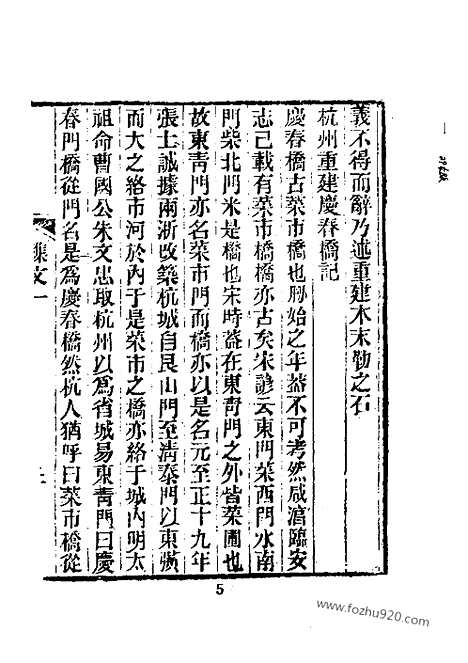 義不得而辭乃述重建本末勒之石
杭州重建慶春橋記
慶春橋古菜市橋也刱始之年蓋不可考然咸湻臨安
志已載有菜市橋橋亦古矣宋諺云東門菜西門水南
門柴北門米是橋也宋時蓋在東靑門之外皆菜圃也
故東靑門亦名菜市門而橋亦以是名元至正十九年
張士誠據兩浙改築杭城自艮山門至淸泰門以東廣
而大之絡市河於內于是菜市之橋亦絡于城內明太
祖命曹國公朱文忠取杭州以爲省城易東靑門曰慶
春門橋從門名是爲慶春橋然杭人猶呼曰菜市橋從
集文一
三
5
www.fozhu920.com